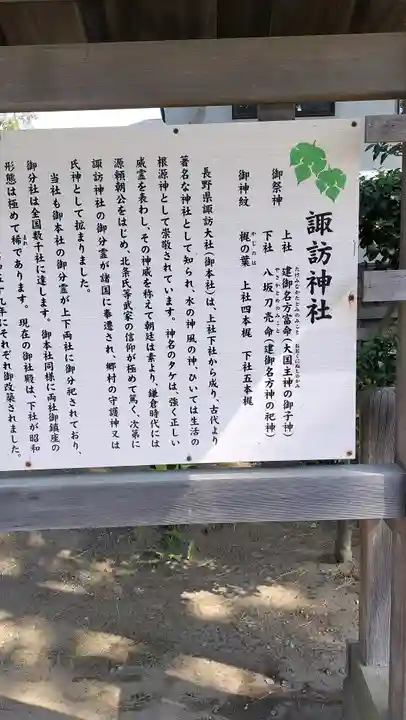 諏訪神社
御祭神
上社 建御名方富命（大国主神の御子神）
たけみなかたとみのみこと
おおくにぬしのかみ
下社 八坂刀売命（建御名方神の祀神）
やさかとめのみこと
御神紋
梶の葉 上社四本梶 下社五本梶
かじのは
長野県諏訪大社（御本社）は、上社下社から成り、古代より
著名な神社として知られ、水の神風の神ひいては生活の
根源神として崇敬されています。神名のタケは、強く正しい
威霊を表わし、その神威を称えて朝廷は素より、鎌倉時代には
源頼朝公をはじめ、北条氏等武家の信仰が極めて篤く、次第に
諏訪神社の御分霊が諸国に奉遷され、郷村の守護神又は
氏神として拡まりました。
当社も御本社の御分霊が上下両社に御分祀されており、
御分社は全国数千社に達します。御本社同様に両社御鎮座の
形態は極めて稀であります。現在の御社殿は、下社が昭和
まれ
九年にそれぞれ御改築されました。